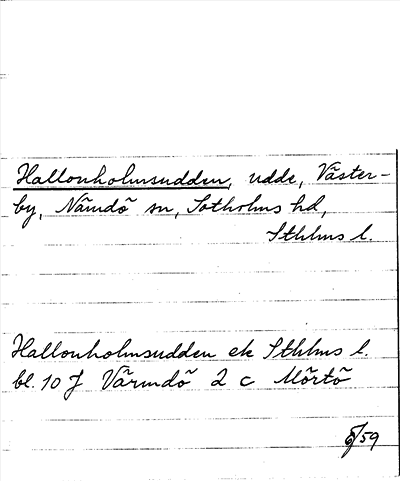 Hallonholmsudden, udde, Väster-
by, Nämdö sn, Sotholms hd,
Sthlms l.
Hallonholmsudden ek Sthlms l.
bl. 10 J Värmdö 2 c Mörtö
/59